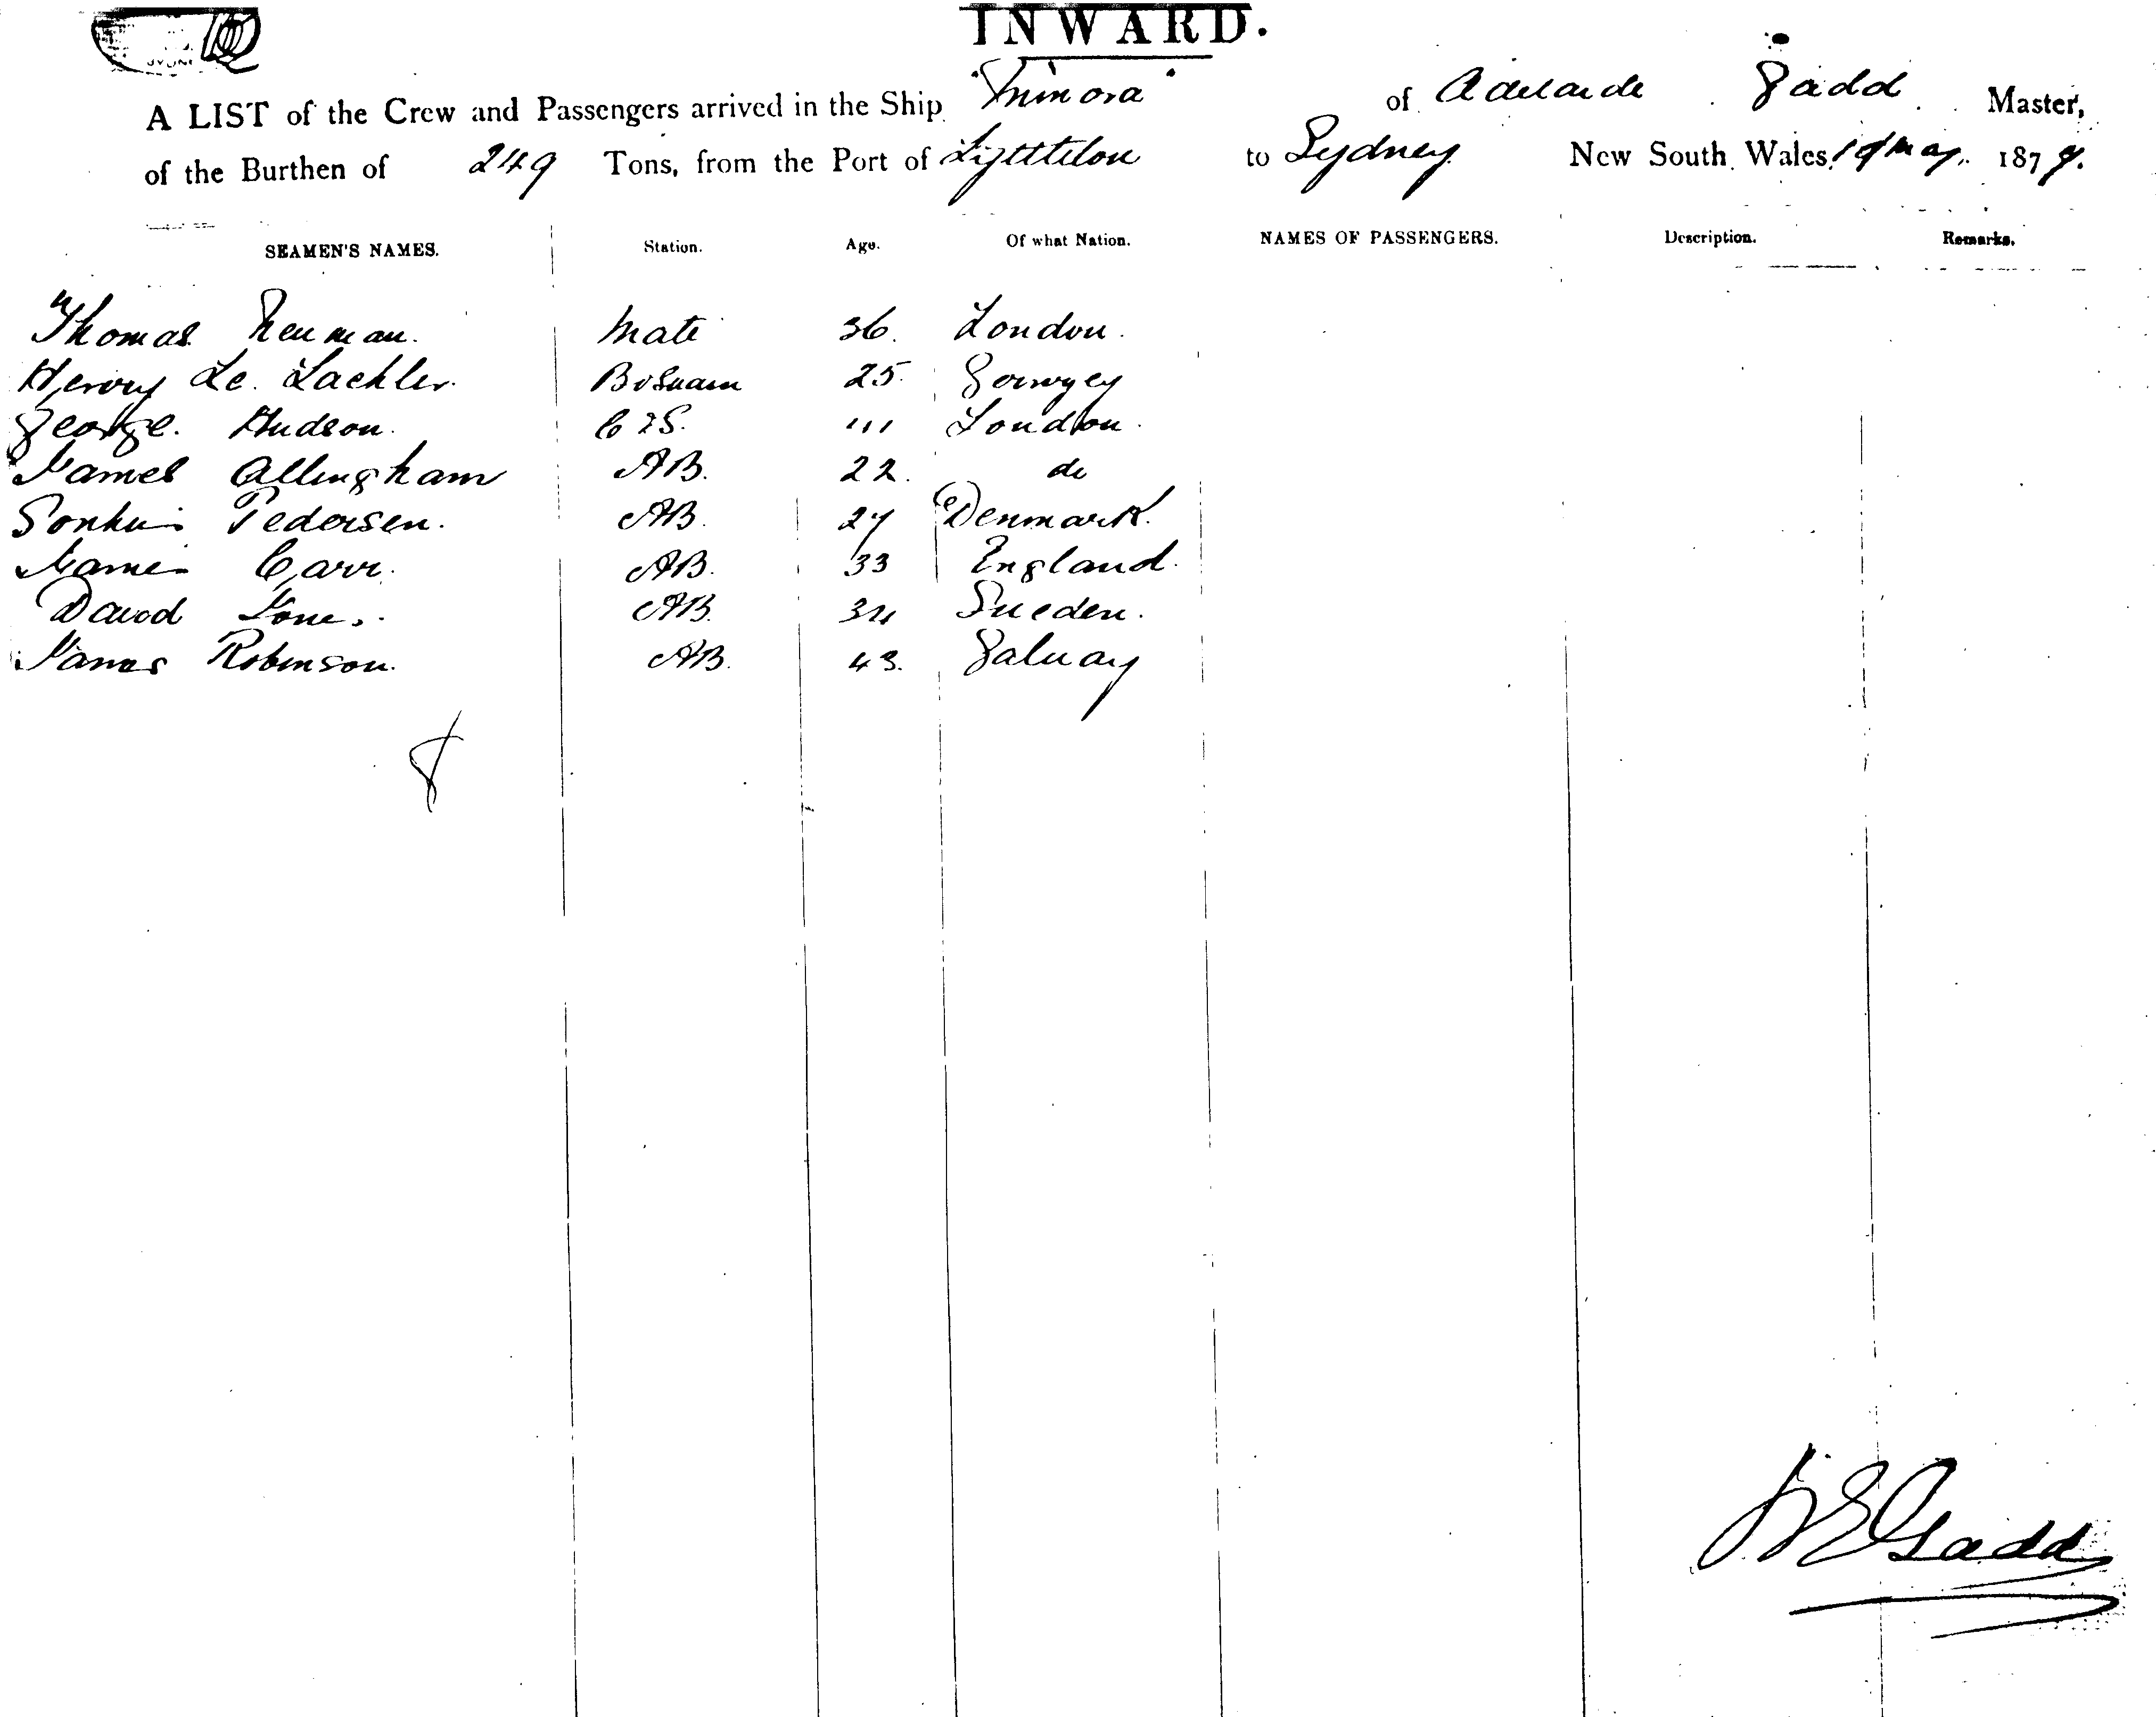 INWARD.
A LIST of the Crew and Passengers arrived in the Ship of Adelaide Gadd Master,
of the Burthen of 249 Tons, from the Port of Lyttelton to Sydney New South Wales, 19 May 1879.
SEAMEN'S NAMES. Station. Age. Of what Nation. NAMES OF PASSENGERS. Description. Remarks.
Thomas Newman. Mate 36. London.
Henry Le. Lachler. Bosuain 25.
George. Hudson. C & S. London.
James Allingham AB. 22. do
Pedersen. AB. 27 Denmark.
James Carr. AB. 33 England.
David Jones. AB. 34 Sweden.
James Robinson. AB. 43. Galway
8
Gadd